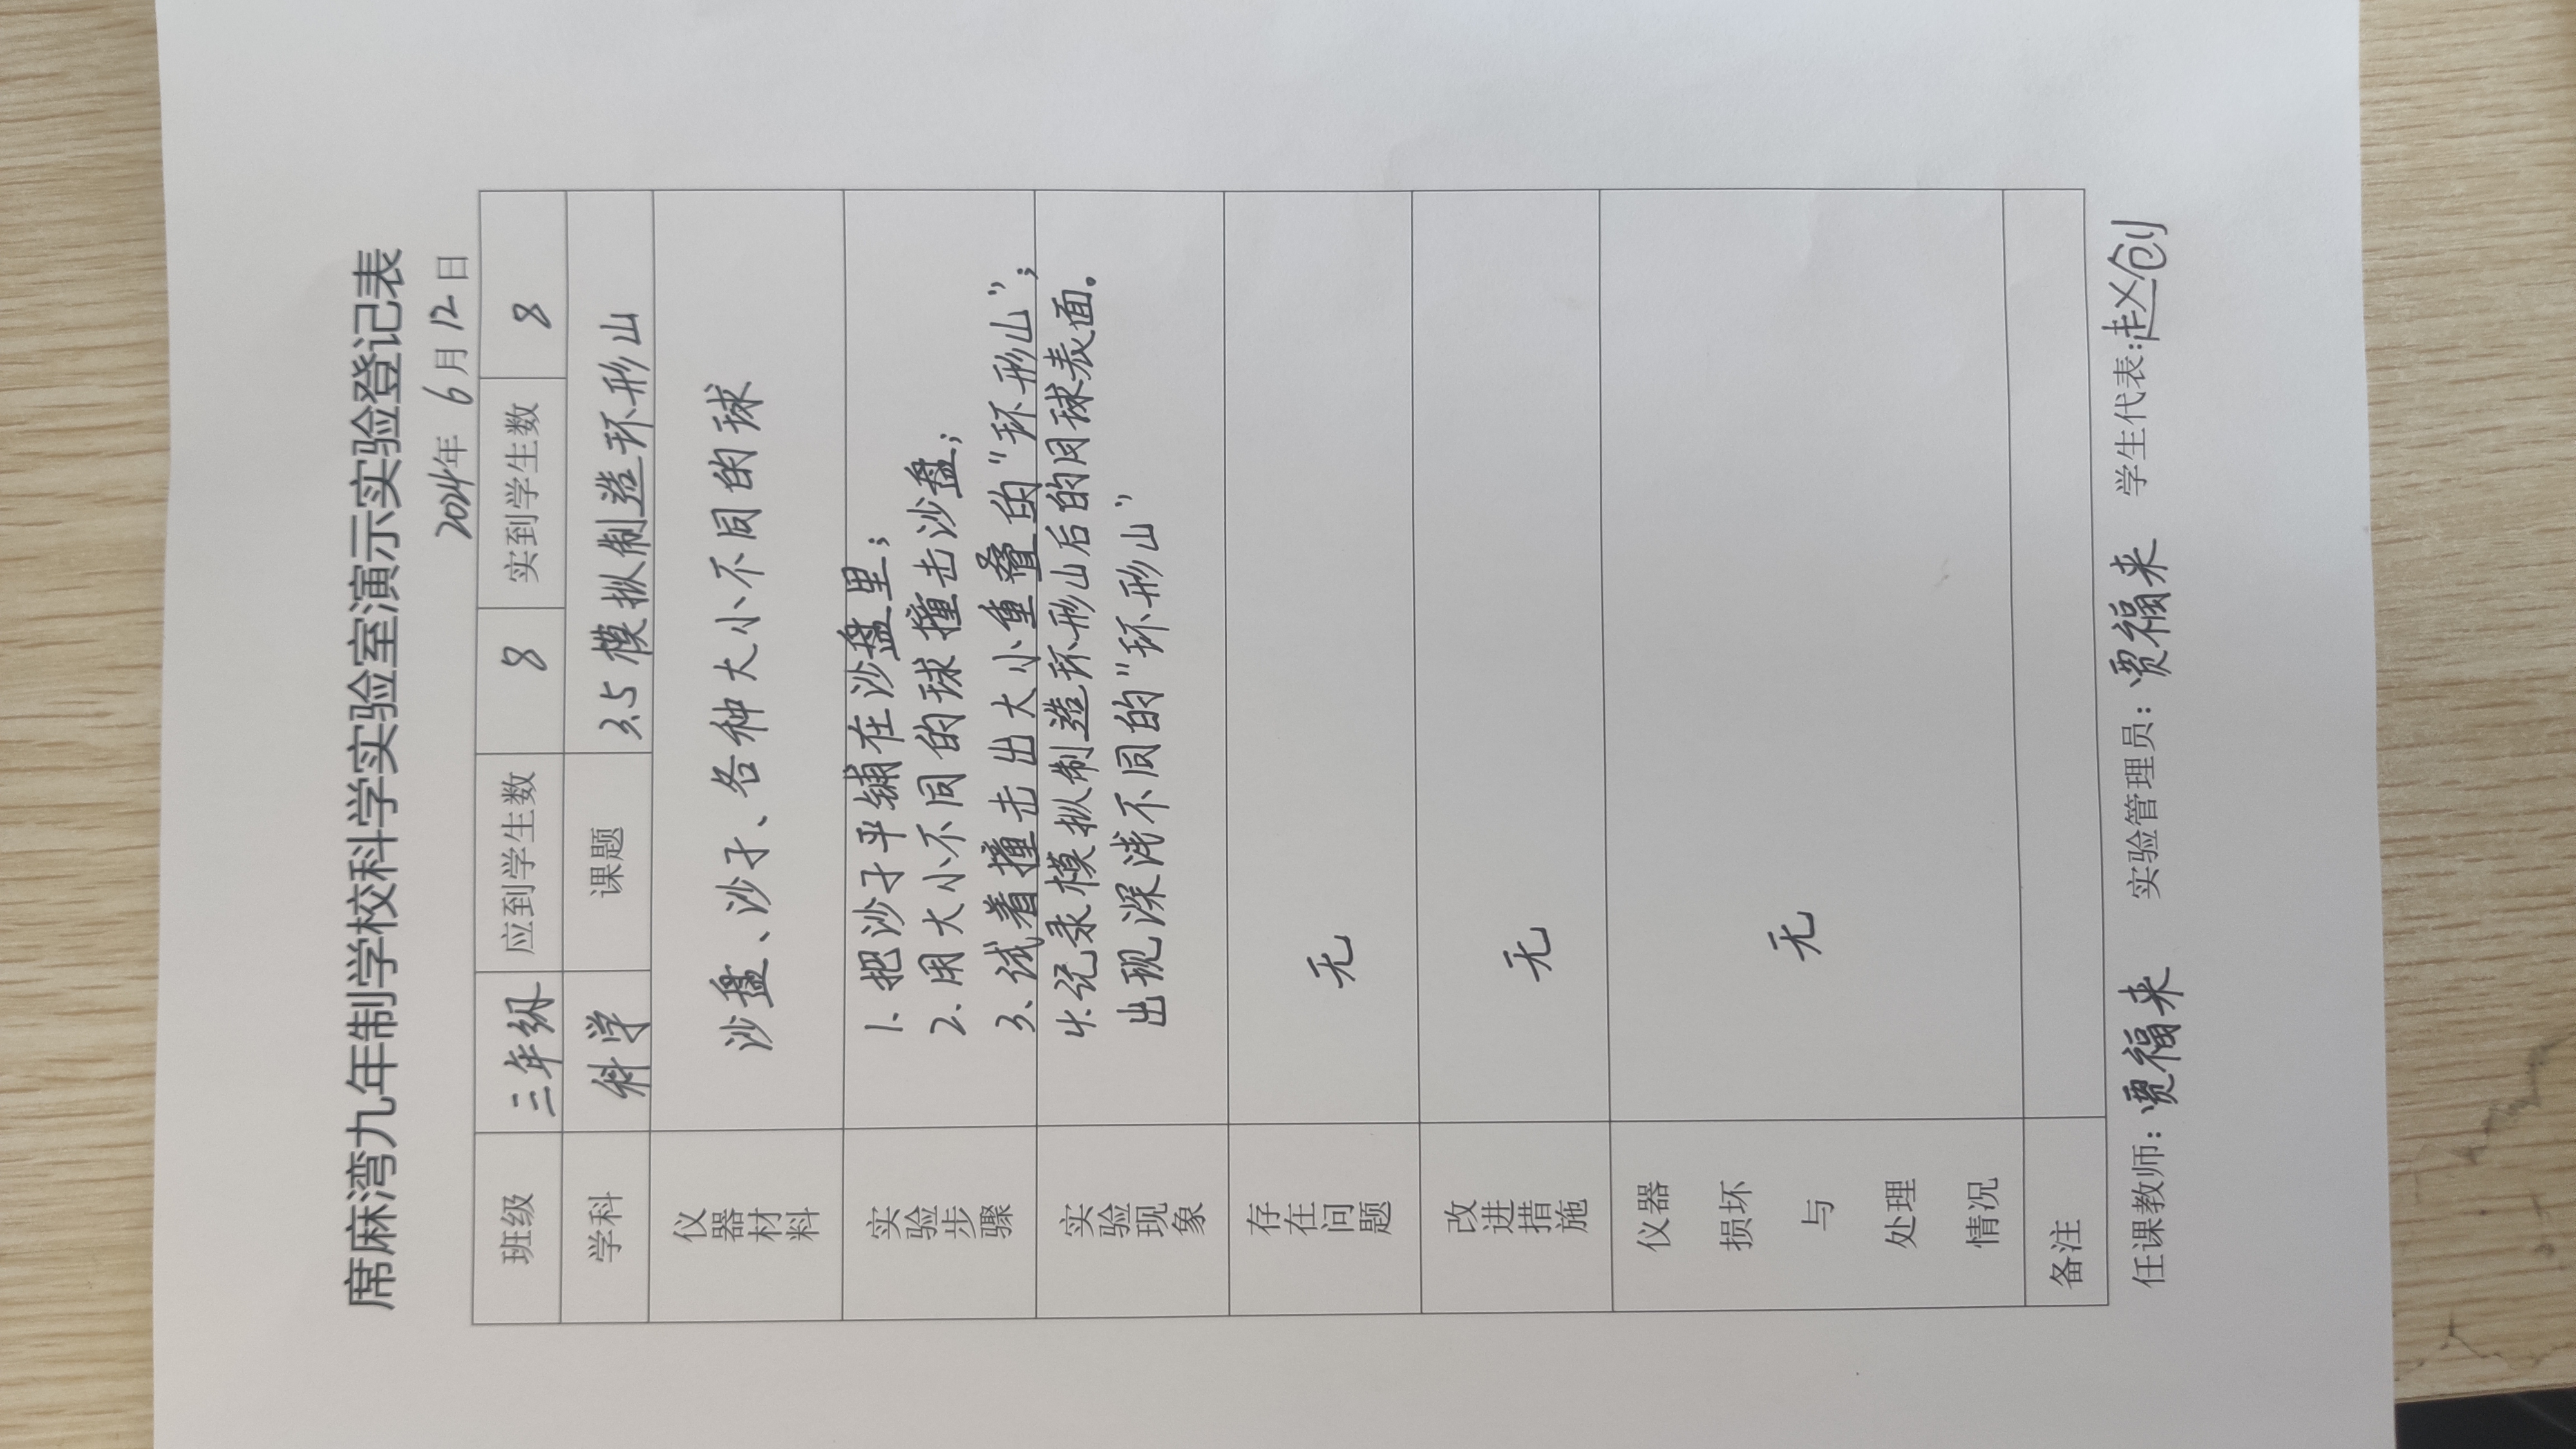 席麻湾九年制学校科学实验室演示实验登记表
2024年 6月12日
班级 三年级 应到学生数 8 实到学生数 8
学科 科学 课题 3.5模拟制造环形山
仪器材料 沙盘、沙子、各种大小不同的球
实验步骤 1. 把沙子平铺在沙盘里;
2. 用大小不同的球撞击沙盘;
3. 试着撞击出大小重叠的"环形山";
4. 记录模拟制造环形山后的月球表面。
实验现象 出现深浅不同的"环形山"
存在问题 无
改进措施 无
仪器损坏与处理情况 无
备注
任课教师: 贾福来 实验管理员: 贾福来 学生代表: 赵创